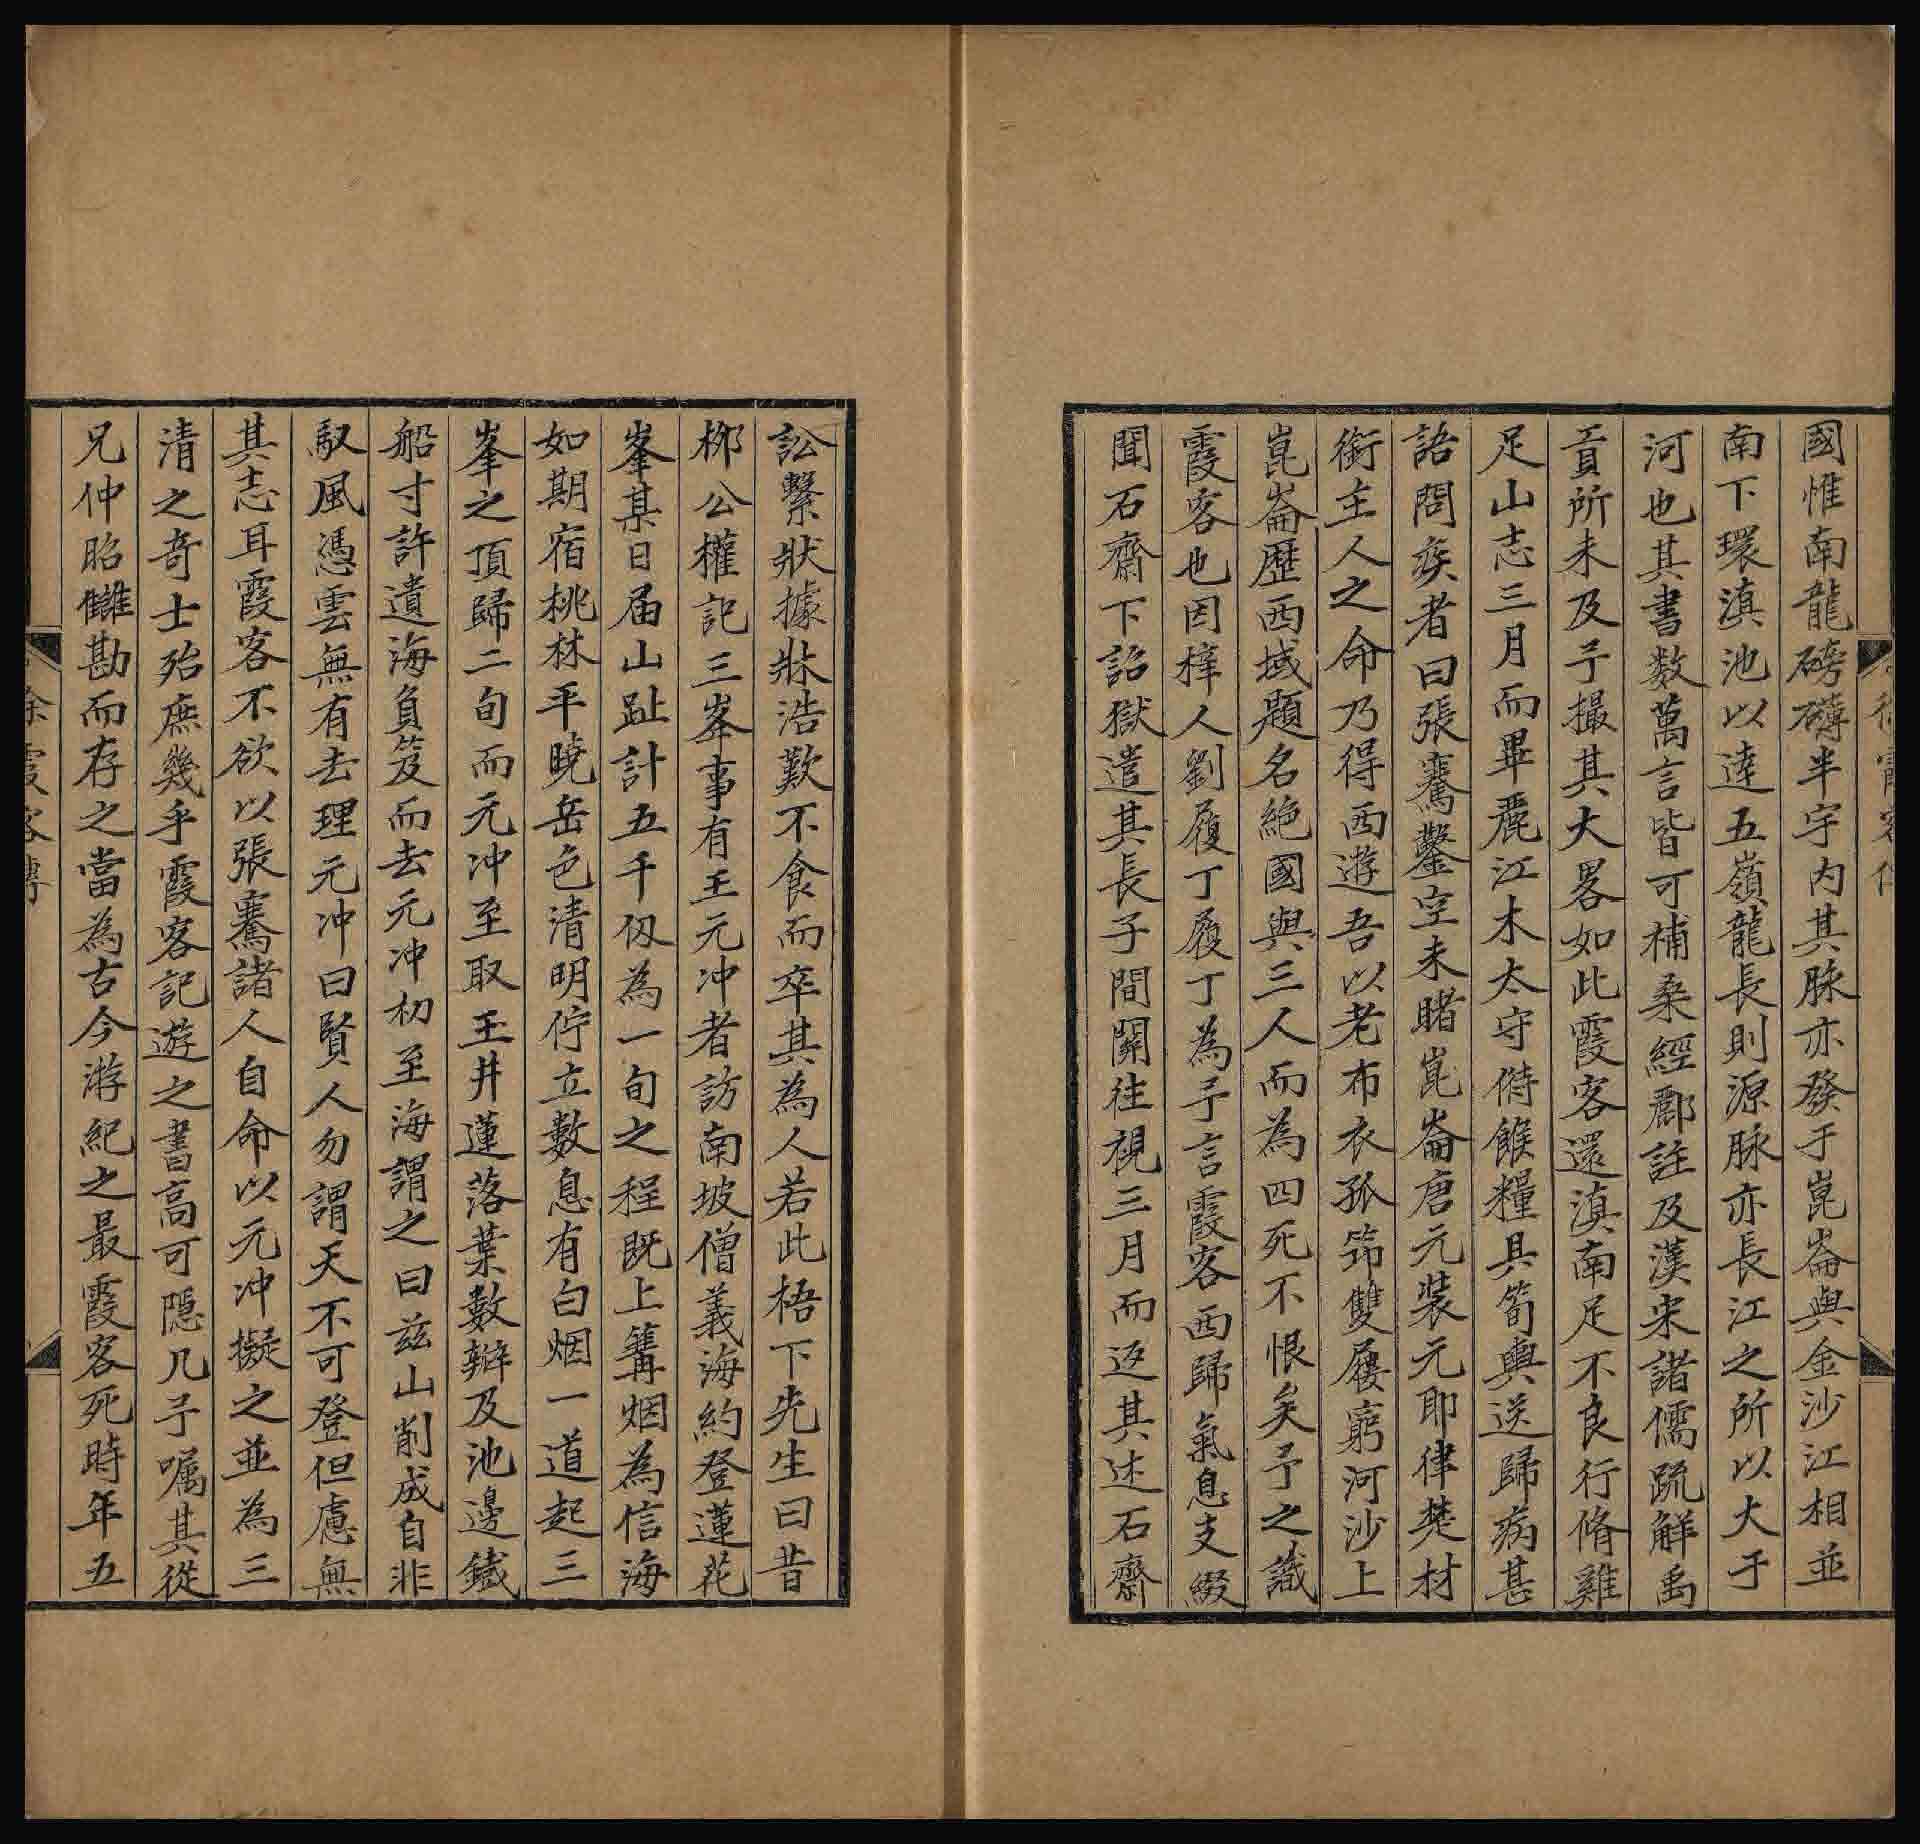 國惟南龍磅礴半宇內其脉亦發于崑崙與金沙江相並
南下環滇池以達五嶺龍長則源脉亦長江之所以大于
河也其書数萬言皆可補桑經酈註及漢宋諸儒疏解禹
貢所未及予撮其大畧如此霞客還滇南足不良行脩雞
足山志三月而畢麗江木太守偫餱糧具筍輿送歸病甚
語問疾者曰張騫鑿空未睹崑崙唐元裝元耶律楚材
銜主人之命乃得西遊吾以老布衣孤笻雙屨窮河沙上
崑崙歷西域題名絕國與三人而為四死不恨矣予之識
霞客也因梓人劉履丁履丁為予言霞客西歸氣息支綴
聞石齋下詔獄遣其長子間關往視三月而返其述石齋
訟繫狀據牀浩歎不食而卒其為人若此梧下先生曰昔
柳公權記三峯事有王元冲者訪南坡僧義海約登蓮花
峯某日届山趾計五千仭為一旬之程既上篝烟為信海
如期宿桃林平曉岳色清明佇立數息有白烟一道起三
峯之頂歸二旬而元冲至取玉井蓮落葉數辦及池邊鐵
船寸許遺海負笈而去元冲初至海謂之曰兹山削成自非
馭風憑雲無有去理元冲曰賢人勿謂天不可登但慮無
其志耳霞客不欲以張騫諸人自命以元冲擬之並為三
清之奇士殆庶幾乎霞客記遊之書高可隱几予嘱其從
兄仲昭讎勘而存之當為古今游紀之最霞客死時年五
徐霞客傳